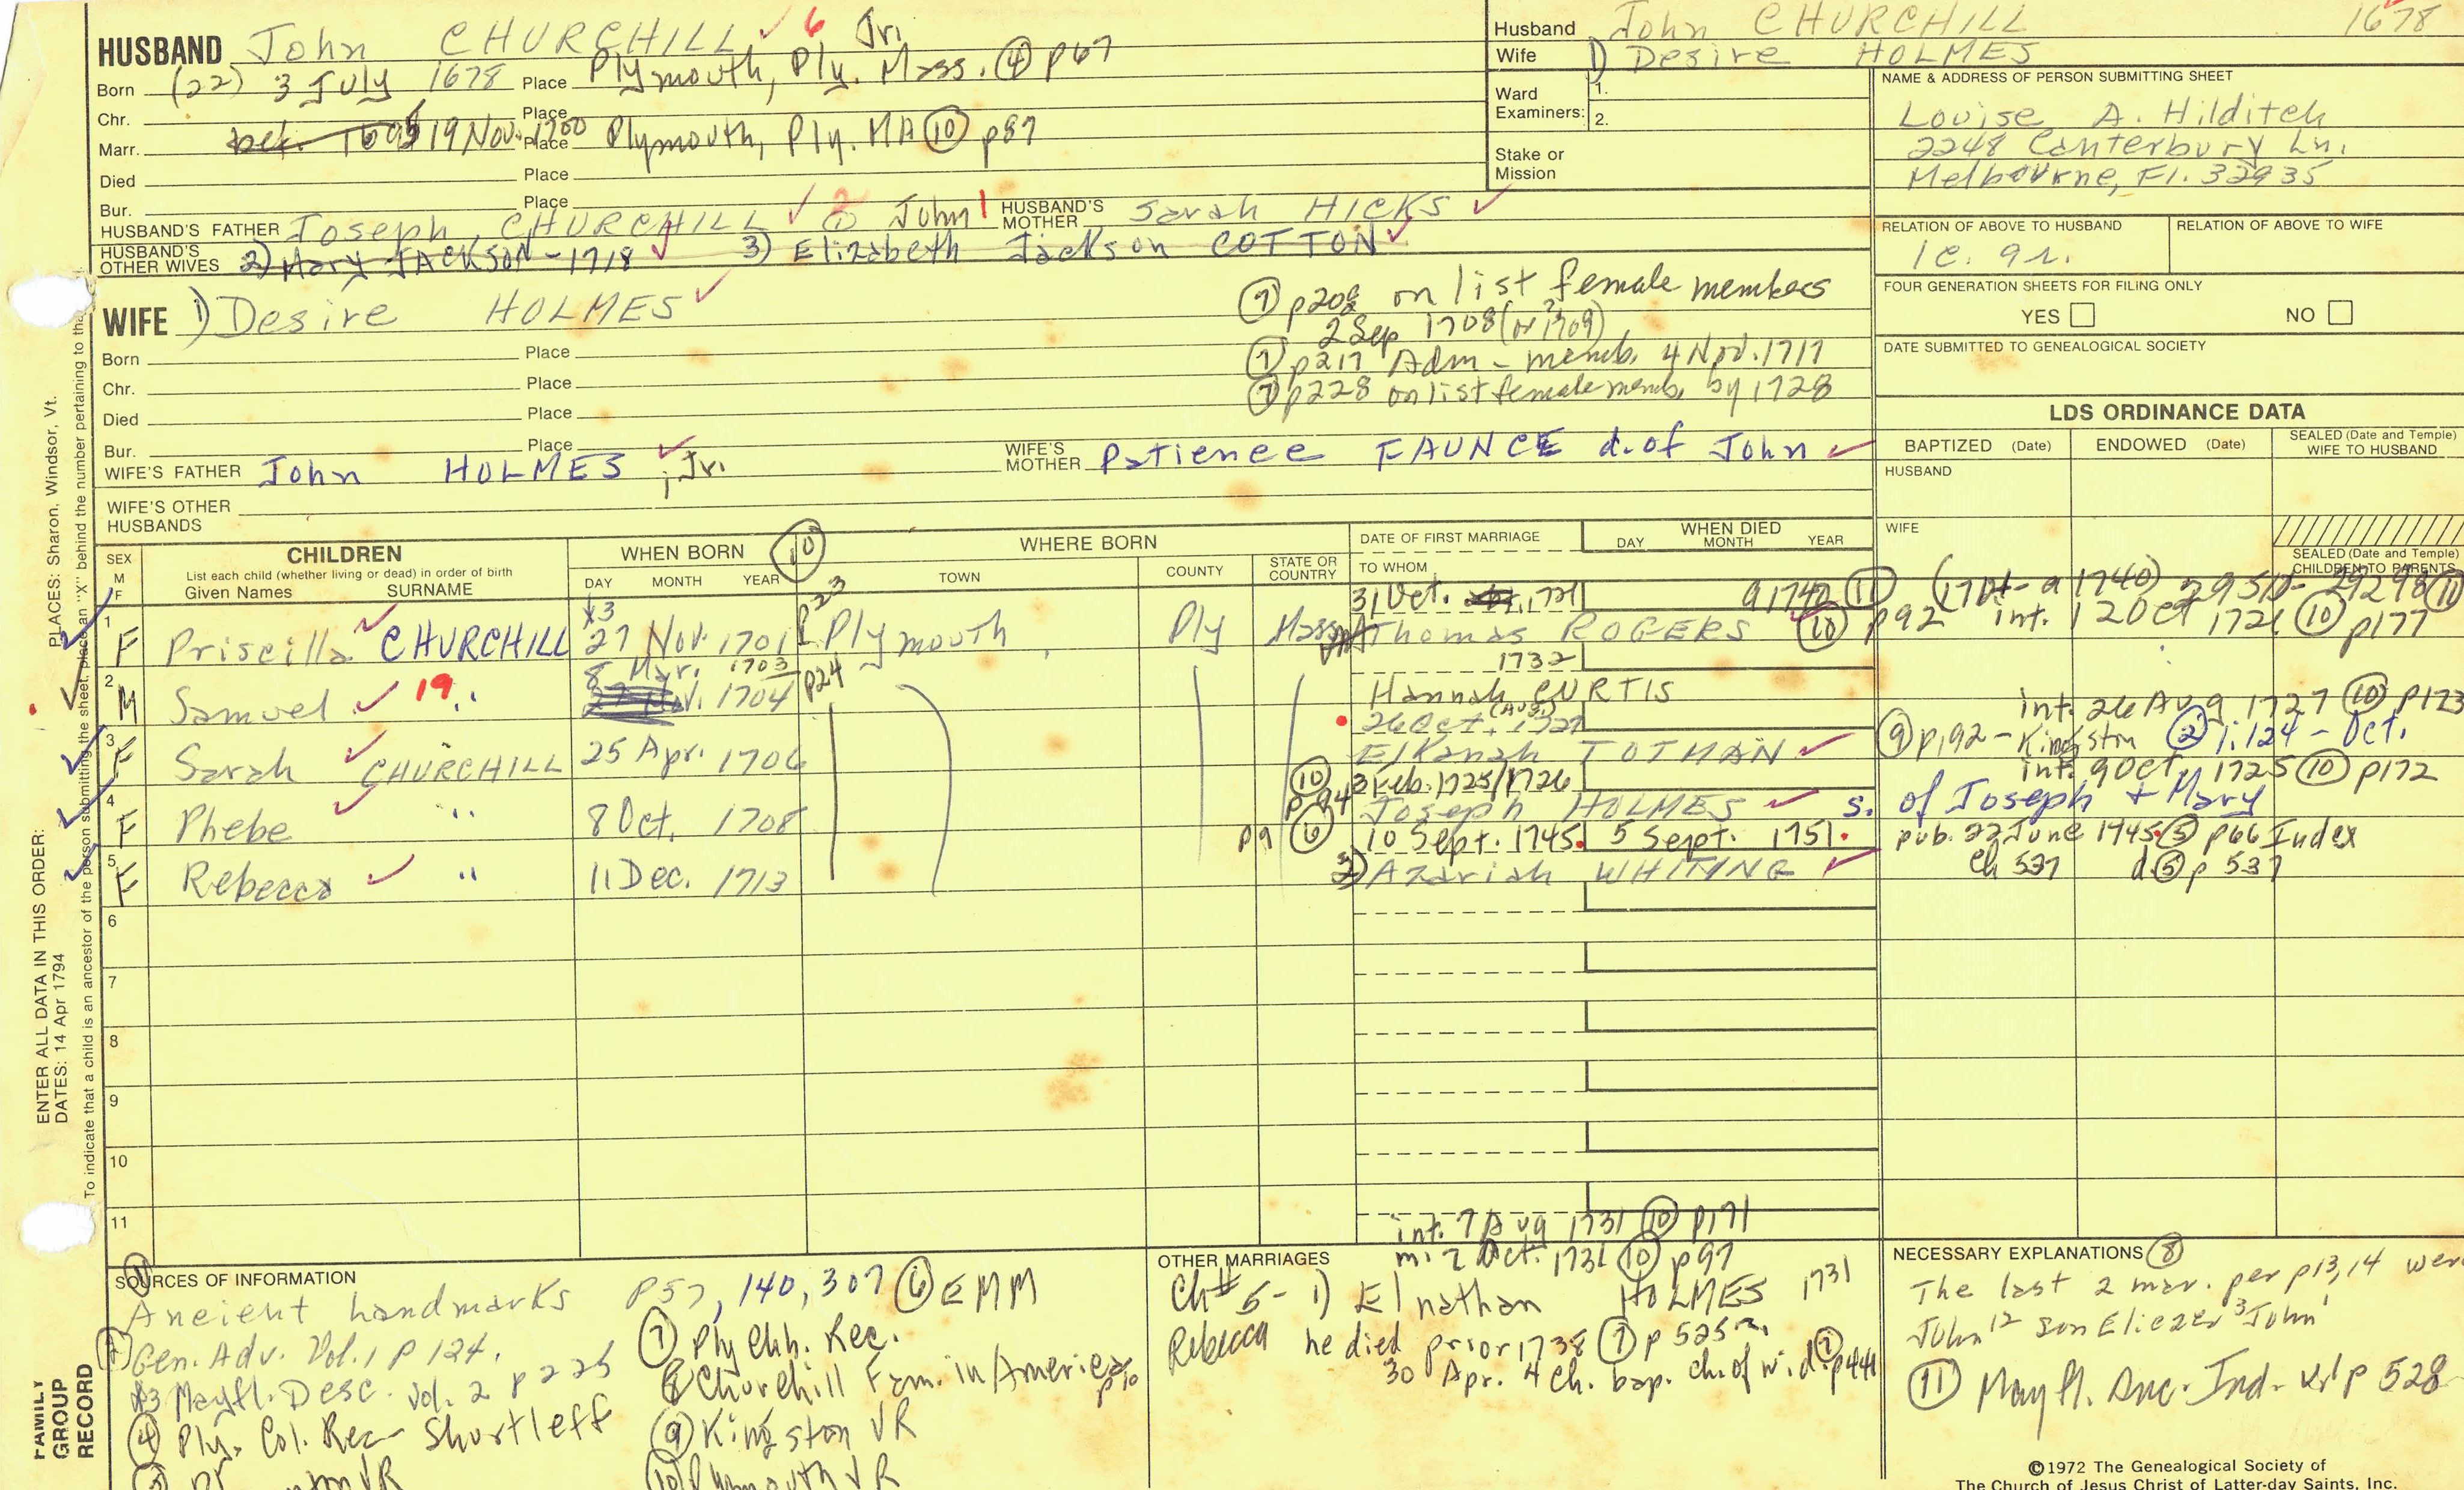 HUSBAND John CHURCHILL ✓ 6 Jr.
Born (22) 3 July 1678 Place Plymouth, Ply. Mass. ④ p67
Chr. Place
Marr. 19 Nov. 1700 Place Plymouth, Ply. MA ⑩ p87
Died Place
Bur. Place
HUSBAND'S FATHER Joseph CHURCHILL ✓ John 1 HUSBAND'S MOTHER Sarah HICKS ✓
HUSBAND'S OTHER WIVES 2) Mary JACKSON - 1718 ✓ 3) Elizabeth Jackson COTTON ✓
Husband John CHURCHILL 1678
Wife 1) Desire HOLMES
Ward Examiners: 1.
2.
Stake or Mission
NAME & ADDRESS OF PERSON SUBMITTING SHEET
Louise A. Hilditch
2248 Canterbury Ln.
Melbourne, Fl. 32935
RELATION OF ABOVE TO HUSBAND RELATION OF ABOVE TO WIFE
FOUR GENERATION SHEETS FOR FILING ONLY
YES NO
DATE SUBMITTED TO GENEALOGICAL SOCIETY
WIFE 1) Desire HOLMES ✓
⑦ p208 on list female members
2 Sep 1708 (or 1709)
⑦ p217 Adm - memb. 4 Nov. 1717
⑦ p228 on list female memb. by 1728
Born Place
Chr. Place
Died Place
Bur. Place
WIFE'S FATHER John HOLMES, Jr. ✓ WIFE'S MOTHER Patience FAUNCE d. of John ✓
WIFE'S OTHER HUSBANDS
LDS ORDINANCE DATA
BAPTIZED (Date) ENDOWED (Date) SEALED (Date and Temple) WIFE TO HUSBAND
HUSBAND
WIFE
SEALED (Date and Temple) CHILDREN TO PARENTS
SEX M F CHILDREN
List each child (whether living or dead) in order of birth
Given Names SURNAME
WHEN BORN ⑩
DAY MONTH YEAR
WHERE BORN
TOWN COUNTY STATE OR COUNTRY
DATE OF FIRST MARRIAGE
TO WHOM
WHEN DIED
DAY MONTH YEAR
31 Oct. 1721 a1740 ⑪ (1701-a1740)
1 F Priscilla CHURCHILL 27 Nov. 1701 p23 Plymouth Ply Mass Thomas ROGERS ⑩ p92 int. 12 Oct 1721 ⑩ p177
8 Mar. 1703 1732
2 M Samuel ✓ 19 " 1704 p24 Hannah CURTIS
26 Oct. (Aug.) 1727 int. 26 Aug 1727 ⑩ p173
3 F Sarah CHURCHILL 25 Apr. 1706 Elkanah TOTMAN ✓ ⑨ p.92 - Kingston ② 1.124 - Oct.
⑩ p94 3 Feb. 1725/1726 int. 9 Oct 1725 ⑩ p172
4 F Phebe " 8 Oct. 1708 Joseph HOLMES ✓ s. of Joseph + Mary
p9 ⑥ 10 Sept. 1745 5 Sept. 1751 pub. 22 June 1745 ⑤ p66 Index
5 F Rebecca ✓ " 11 Dec. 1713 2) Azariah WHITING ✓ ch 537 d ⑤ p 537
6
7
8
9
10
11
int. 7 Aug 1731 ⑩ p171
m. 2 Oct. 1731 ⑩ p97
SOURCES OF INFORMATION
① Ancient Landmarks p57, 140, 307 ⑥ EMM
② Gen. Adv. Vol. 1 p 124. ⑦ Ply Chh. Rec.
#3 Mayfl. Desc. Vol. 2 p 225 ⑧ Churchill Fam. in America p10
④ Ply. Col. Rec - Shurtleff ⑨ Kingston VR
VR ⑩ Plymouth VR
OTHER MARRIAGES
Ch# 5 - 1) Elnathan HOLMES 1731
Rebecca he died prior 1738 ⑦ p 525
30 Apr. 4 ch. bap. ch. of wid. ⑦ p441
NECESSARY EXPLANATIONS ⑧
The last 2 mar. per p13, 14 were
John 12 son Eliezer 3 John 1
⑪ Mayfl. Anc. Ind. p 528
©1972 The Genealogical Society of
The Church of Jesus Christ of Latter-day Saints, Inc.
PLACES: Sharon, Windsor, Vt.
ENTER ALL DATA IN THIS ORDER:
DATES: 14 Apr 1794
To indicate that a child is an ancestor of the person submitting the sheet, place an "X" behind the number pertaining to that
FAMILY GROUP RECORD